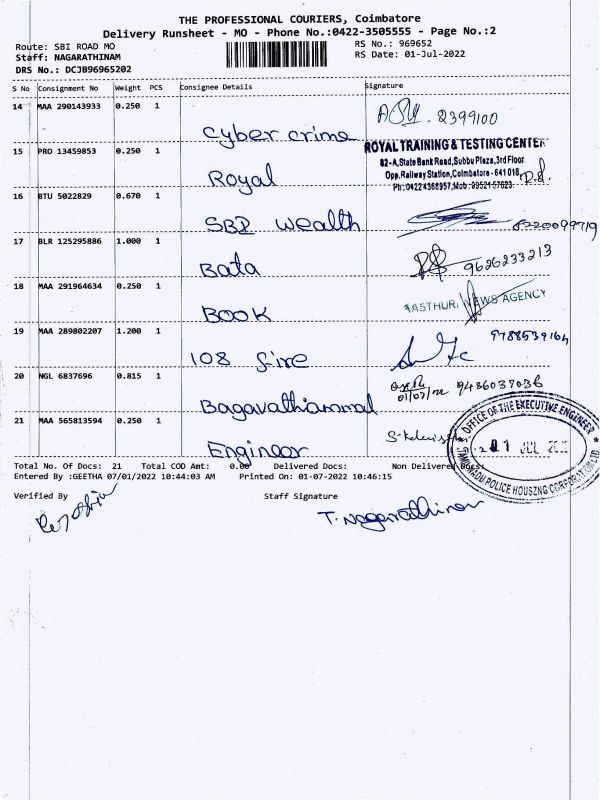 THE PROFESSIONAL COURIERS, Coimbatore
Delivery Runsheet - MO - Phone No.:0422-3505555 - Page No.:2
Route: SBI ROAD MO RS No.: 969652
Staff: NAGARATHINAM RS Date: 01-Jul-2022
DRS No.: DCJB96965202
S No Consignment No Weight PCS Consignee Details Signature
14 MAA 290143933 0.250 1 2399100
Cyber crime
ROYAL TRAINING & TESTING CENTER
15 PRO 13459853 0.250 1 82-A,State Bank Road,Subbu Plaza,3rd Floor
Royal Opp.Railway Station,Coimbatore - 641 018.
Ph:04224368957,Mob:99521-57623.
16 BTU 5022829 0.670 1
SBI wealth 8220099719
17 BLR 125295886 1.000 1
Bata 9626233213
18 MAA 291964634 0.250 1
BOOK KASTHURI NEWS AGENCY
19 MAA 289802207 1.200 1 9788539164
108 fire
20 NGL 6837696 0.815 1 01/07/22 9486037036
Bagavathiammal
21 MAA 565813594 0.250 1
Engineer
OFFICE OF THE EXECUTIVE ENGINEER
01 JUL
TAMILNADU POLICE HOUSING CORPORATION LTD.
Total No. Of Docs: 21 Total COD Amt: 0.00 Delivered Docs: Non Delivered Docs:
Entered By :GEETHA 07/01/2022 10:44:03 AM Printed On: 01-07-2022 10:46:15
Verified By Staff Signature
T. Nagarathinam